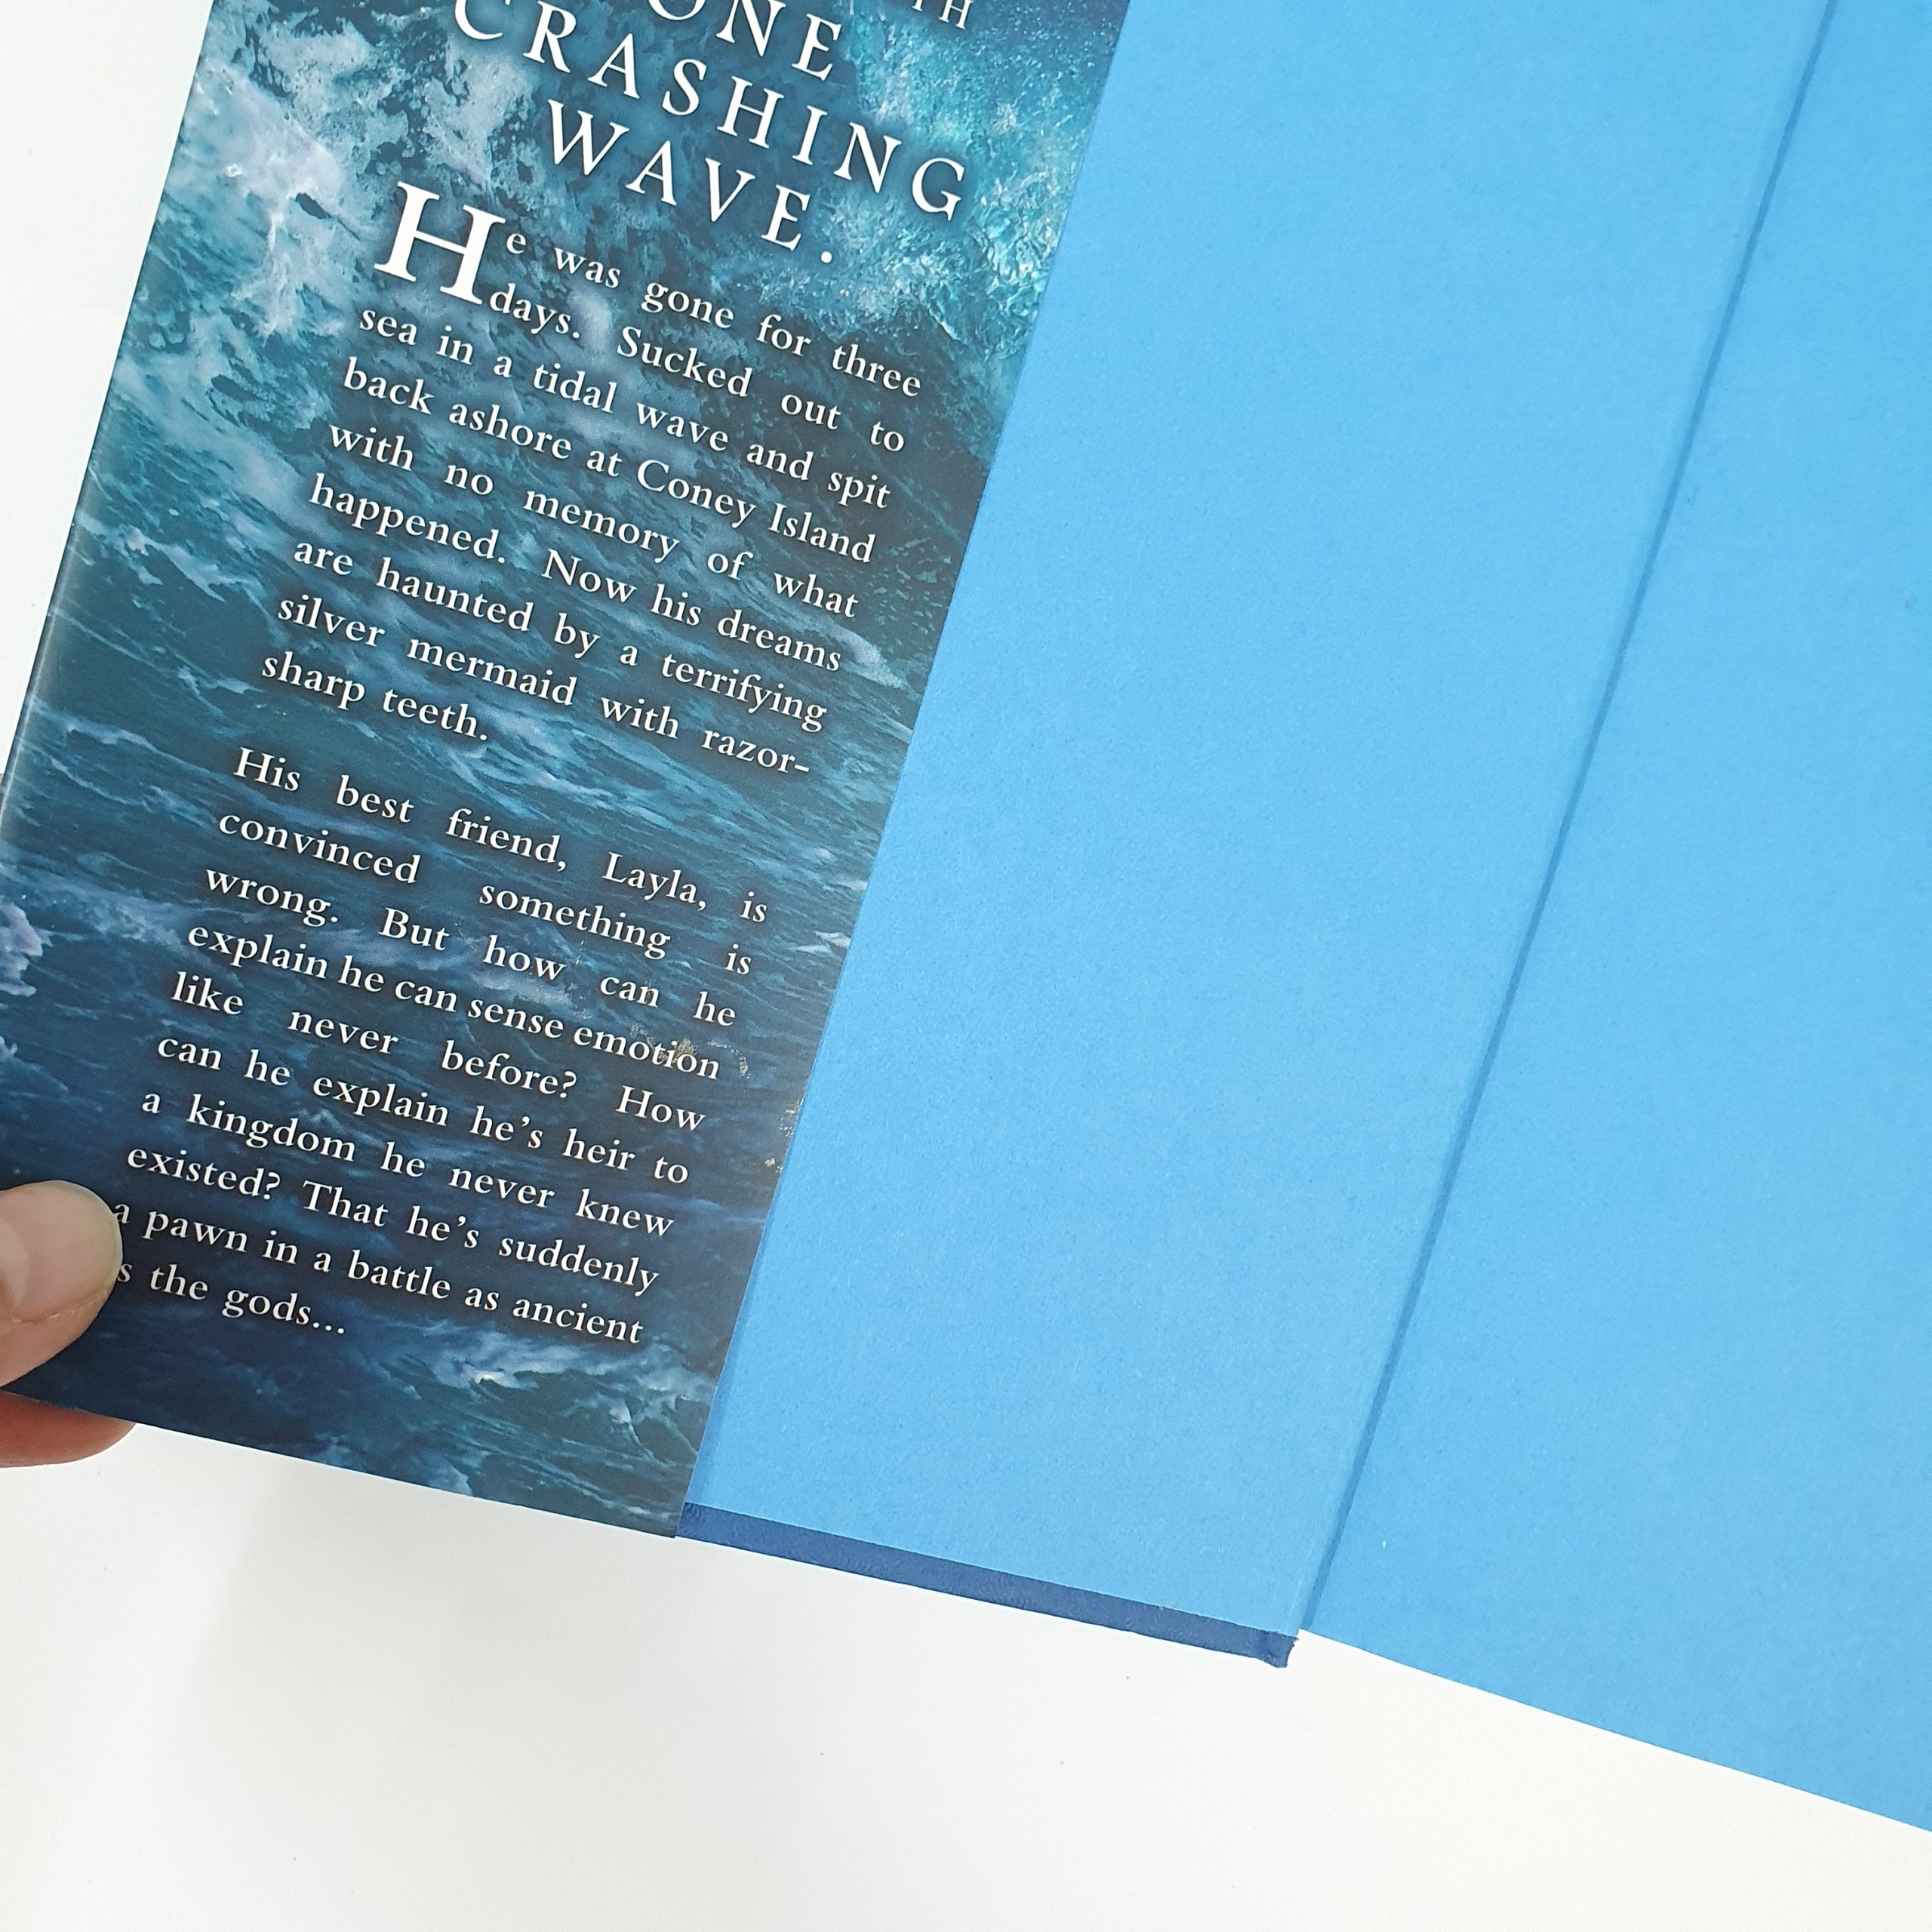 ONE
CRASHING
WAVE.
He was gone for three
days. Sucked out to
sea in a tidal wave and spit
back ashore at Coney Island
with no memory of what
happened. Now his dreams
are haunted by a terrifying
silver mermaid with razor-
sharp teeth.
His best friend, Layla, is
convinced something is
wrong. But how can he
explain he can sense emotion
like never before? How
can he explain he's heir to
a kingdom he never knew
existed? That he's suddenly
a pawn in a battle as ancient
the gods...